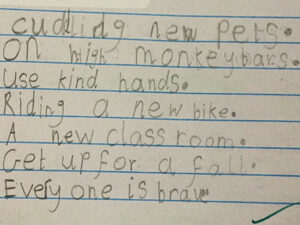 cudling new pets.
On high monkeybars.
Use kind hands.
Riding a new bike.
A new classroom.
Get up for a fall.
Every one is brave